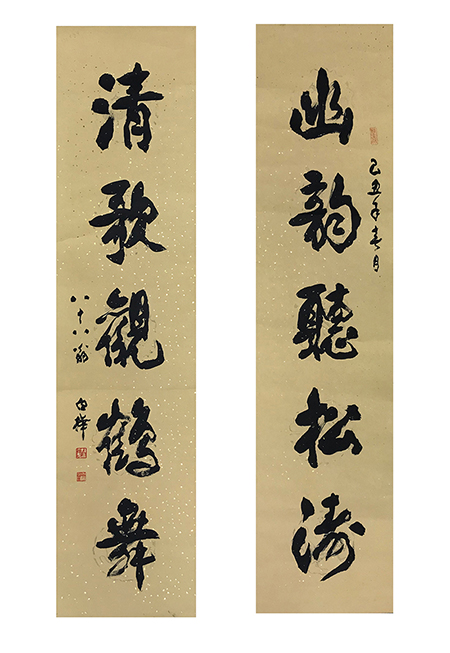 幽韵聽松涛
己丑年春月
清歌觀鶴舞
八十八翁